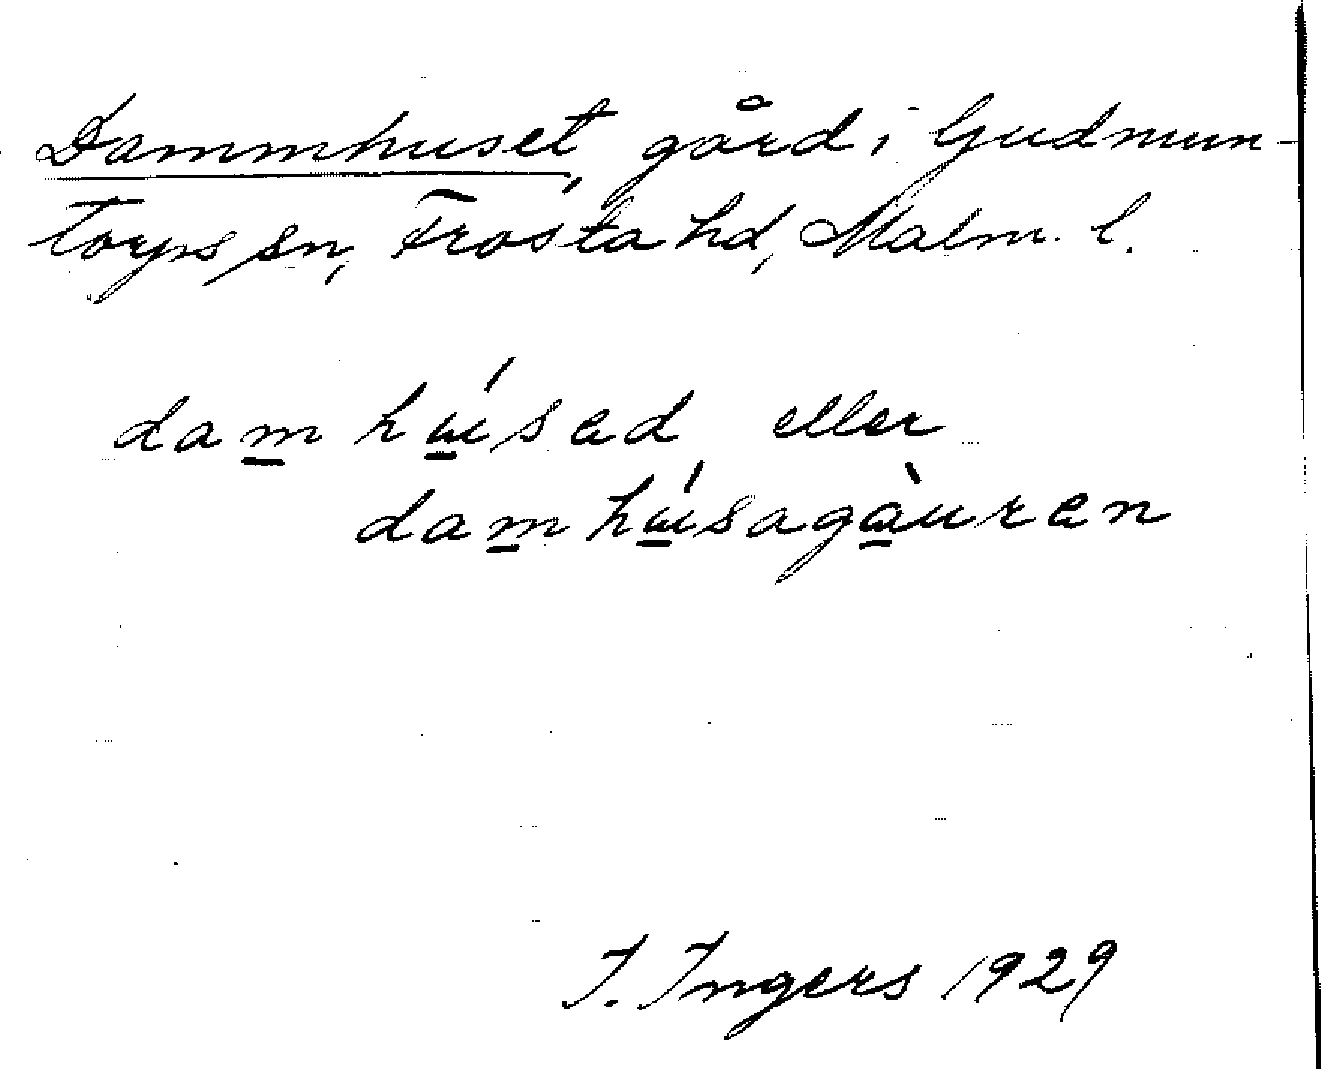 Dammhuset, gård i Gudmun-
torps sn, Frosta hd, Malm. l.
damhúsad eller
damhúsagàuran
I. Ingers 1929